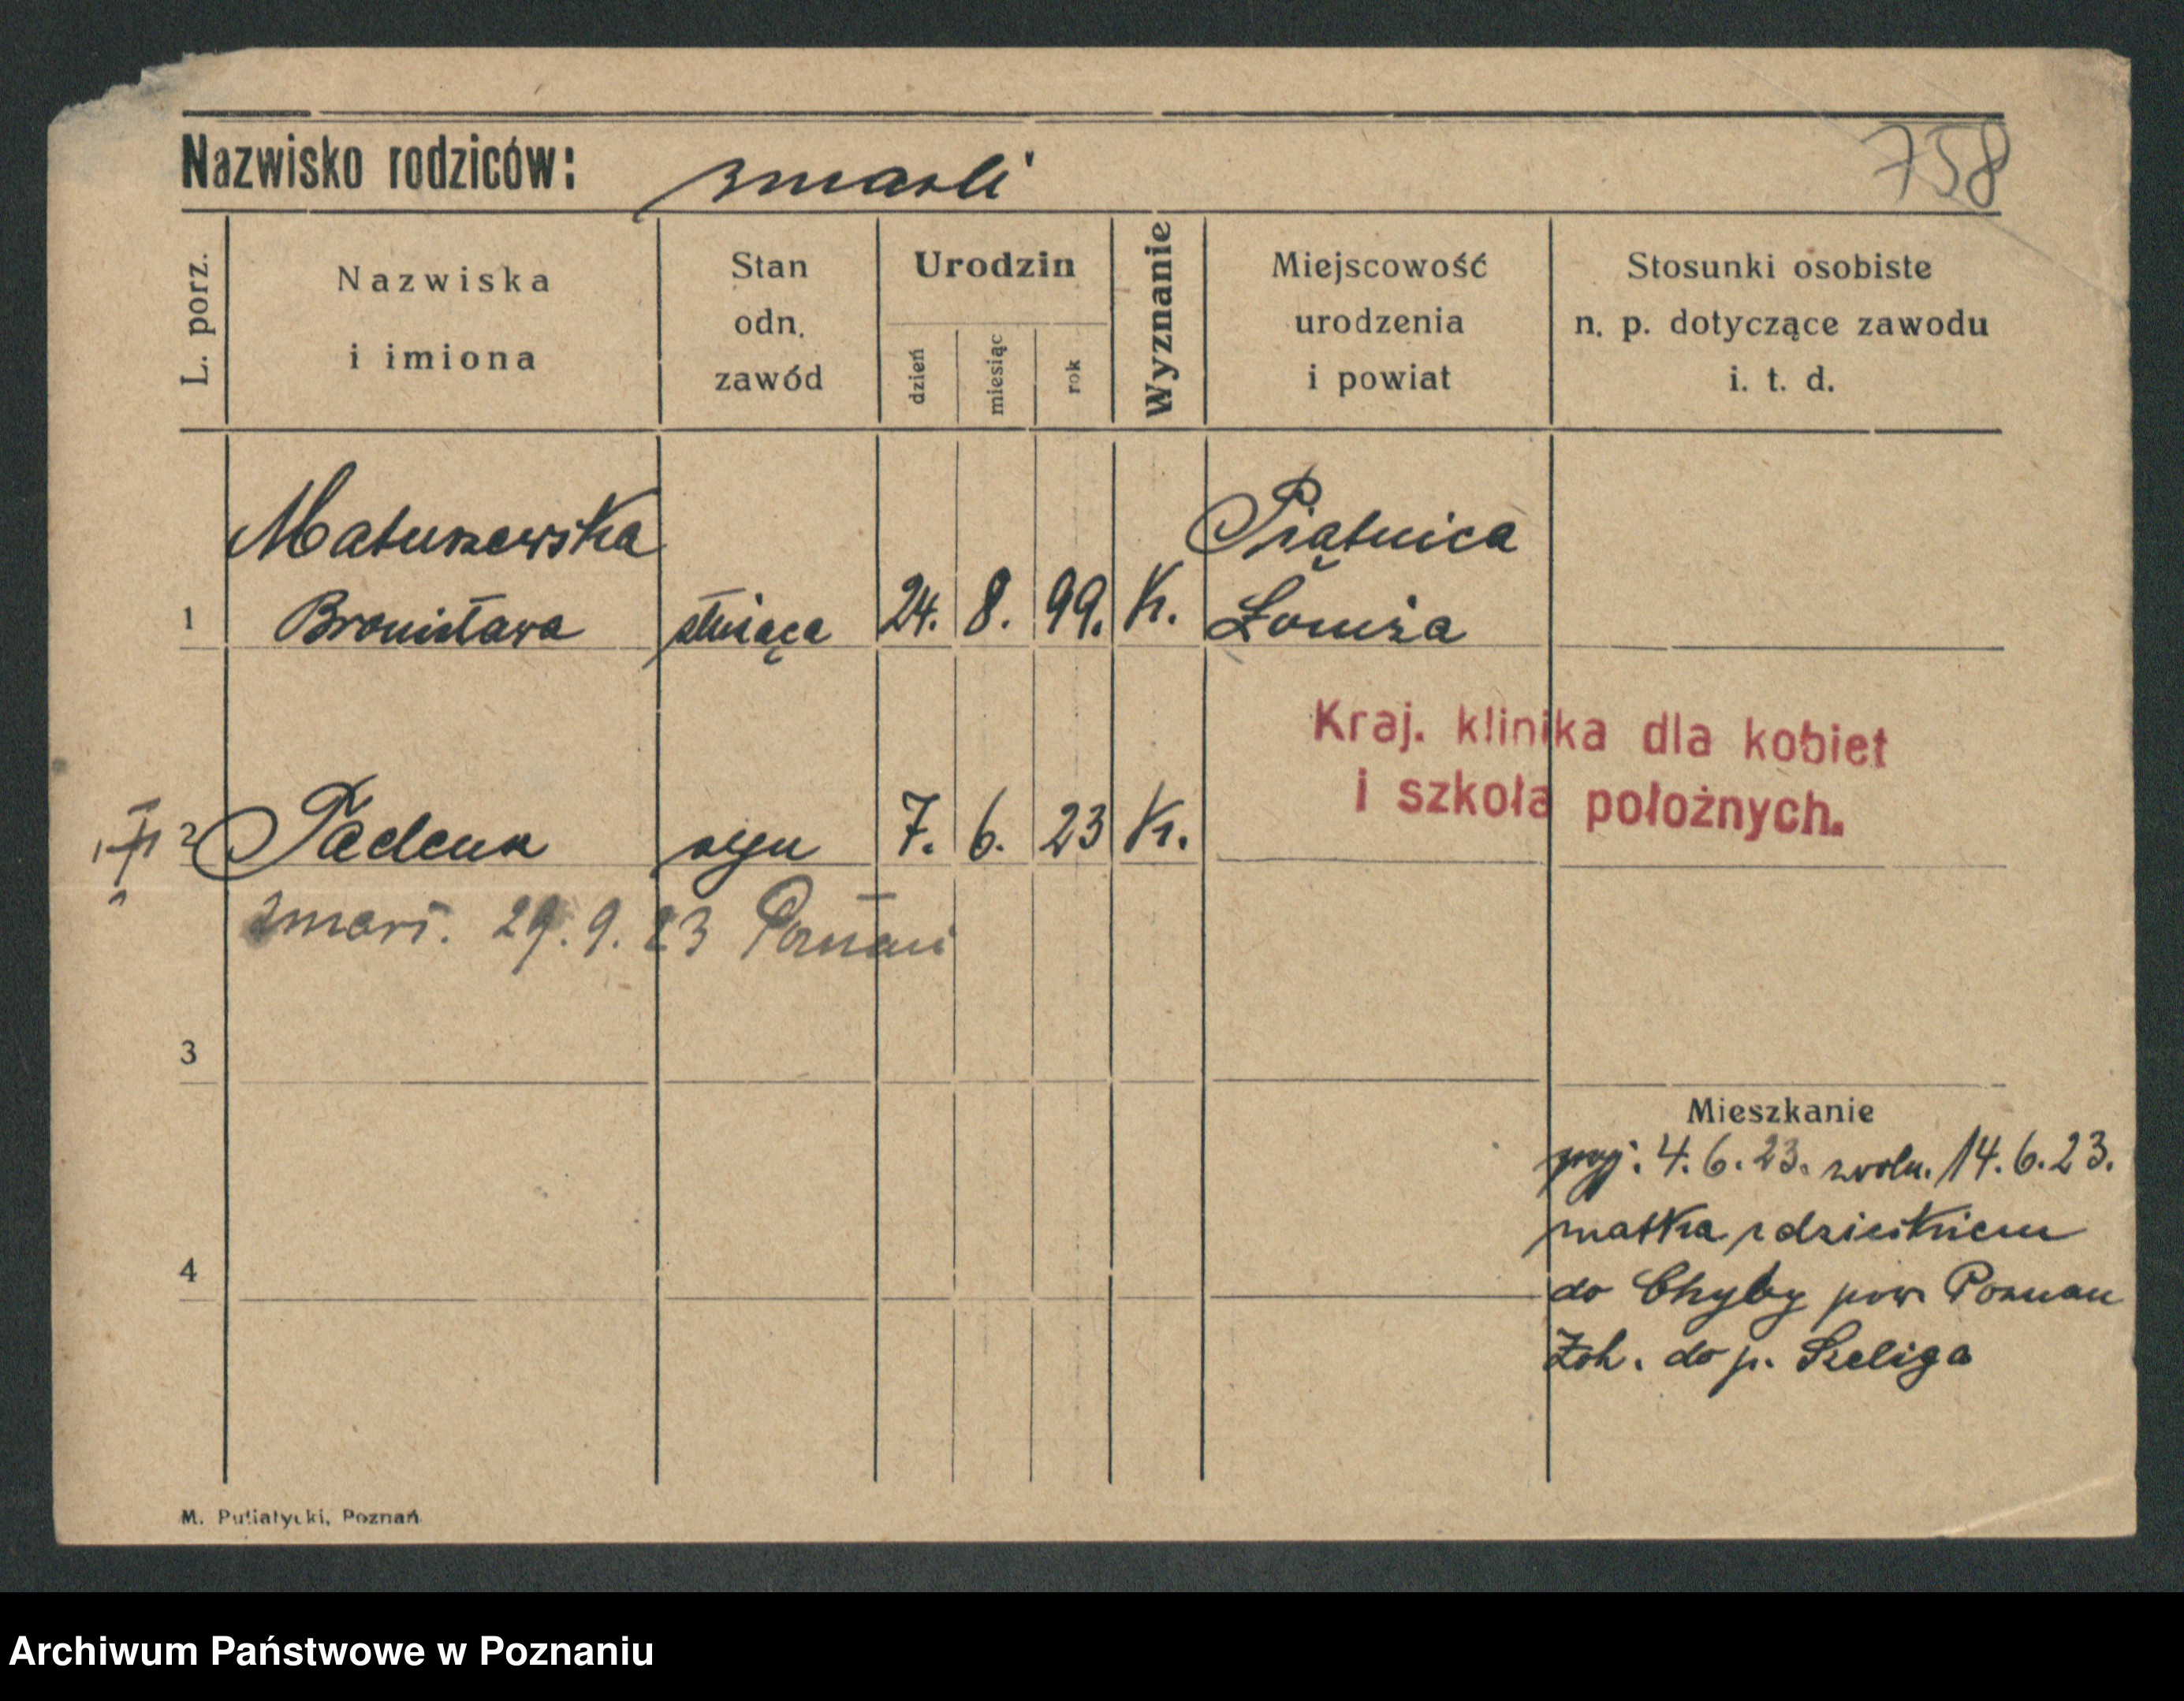 Nazwisko rodziców: zmarli
758
L. porz.
Nazwiska
i imiona
Stan
odn.
zawód
Urodzin
dzień
miesiąc
rok
Wyznanie
Miejscowość
urodzenia
i powiat
Stosunki osobiste
n. p. dotyczące zawodu
i. t. d.
Matuszewska
Piątnica
1 Bronisława służąca 24. 8. 99. K. Łomża
Kraj. klinika dla kobiet
i szkoła położnych.
2 syn 7. 6. 23 K.
zmarł. 29. 9. 23 Poznań
3
Mieszkanie
przyj. 4. 6. 23. zwoln. 14. 6. 23.
matka z dzieckiem
4
do Chyby pow. Poznań
do p. Szeliga
M. Putiatycki, Poznań
Archiwum Państwowe w Poznaniu